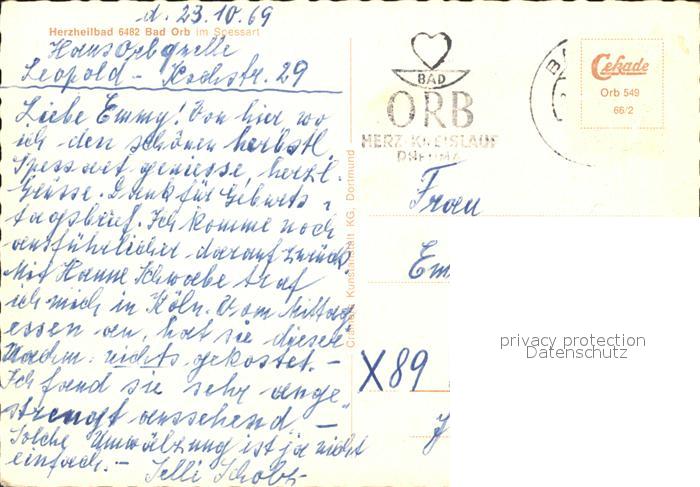 d. 23.10.69
Herzheilbad 6482 Bad Orb im Spessart
Haus Orbquelle
Leopold-Kochstr. 29
Liebe Emmy! Von hier wo
ich den schönen herbstl.
Spessart geniesse, herzl.
Grüsse. Dank für Geburts-
tagsbrief. Ich komme noch
ausführlicher darauf zurück.
Mit Hanne Schwabe traf
ich mich in Köln. Vom Mittag
essen an, hat sie dieser
Nachm. nichts gekostet. –
Ich fand sie sehr ange-
strengt aussehend. –
Solche Umwälzung ist ja nicht
einfach. –
BAD
ORB
HERZ KREISLAUF
RHEUMA
Cekade
Orb 549
66/2
Kunstanstalt KG, Dortmund
Frau
Em
X89
privacy protection
Datenschutz